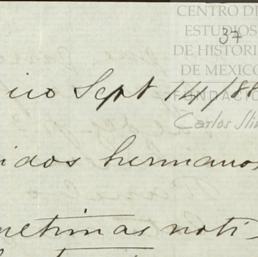 CENTRO DE
ESTUDIOS
DE HISTORIA
DE MEXICO
FUNDACIÓN
Carlos Slim
37
ico Sept 14/88
idos hermanos
netimas noti